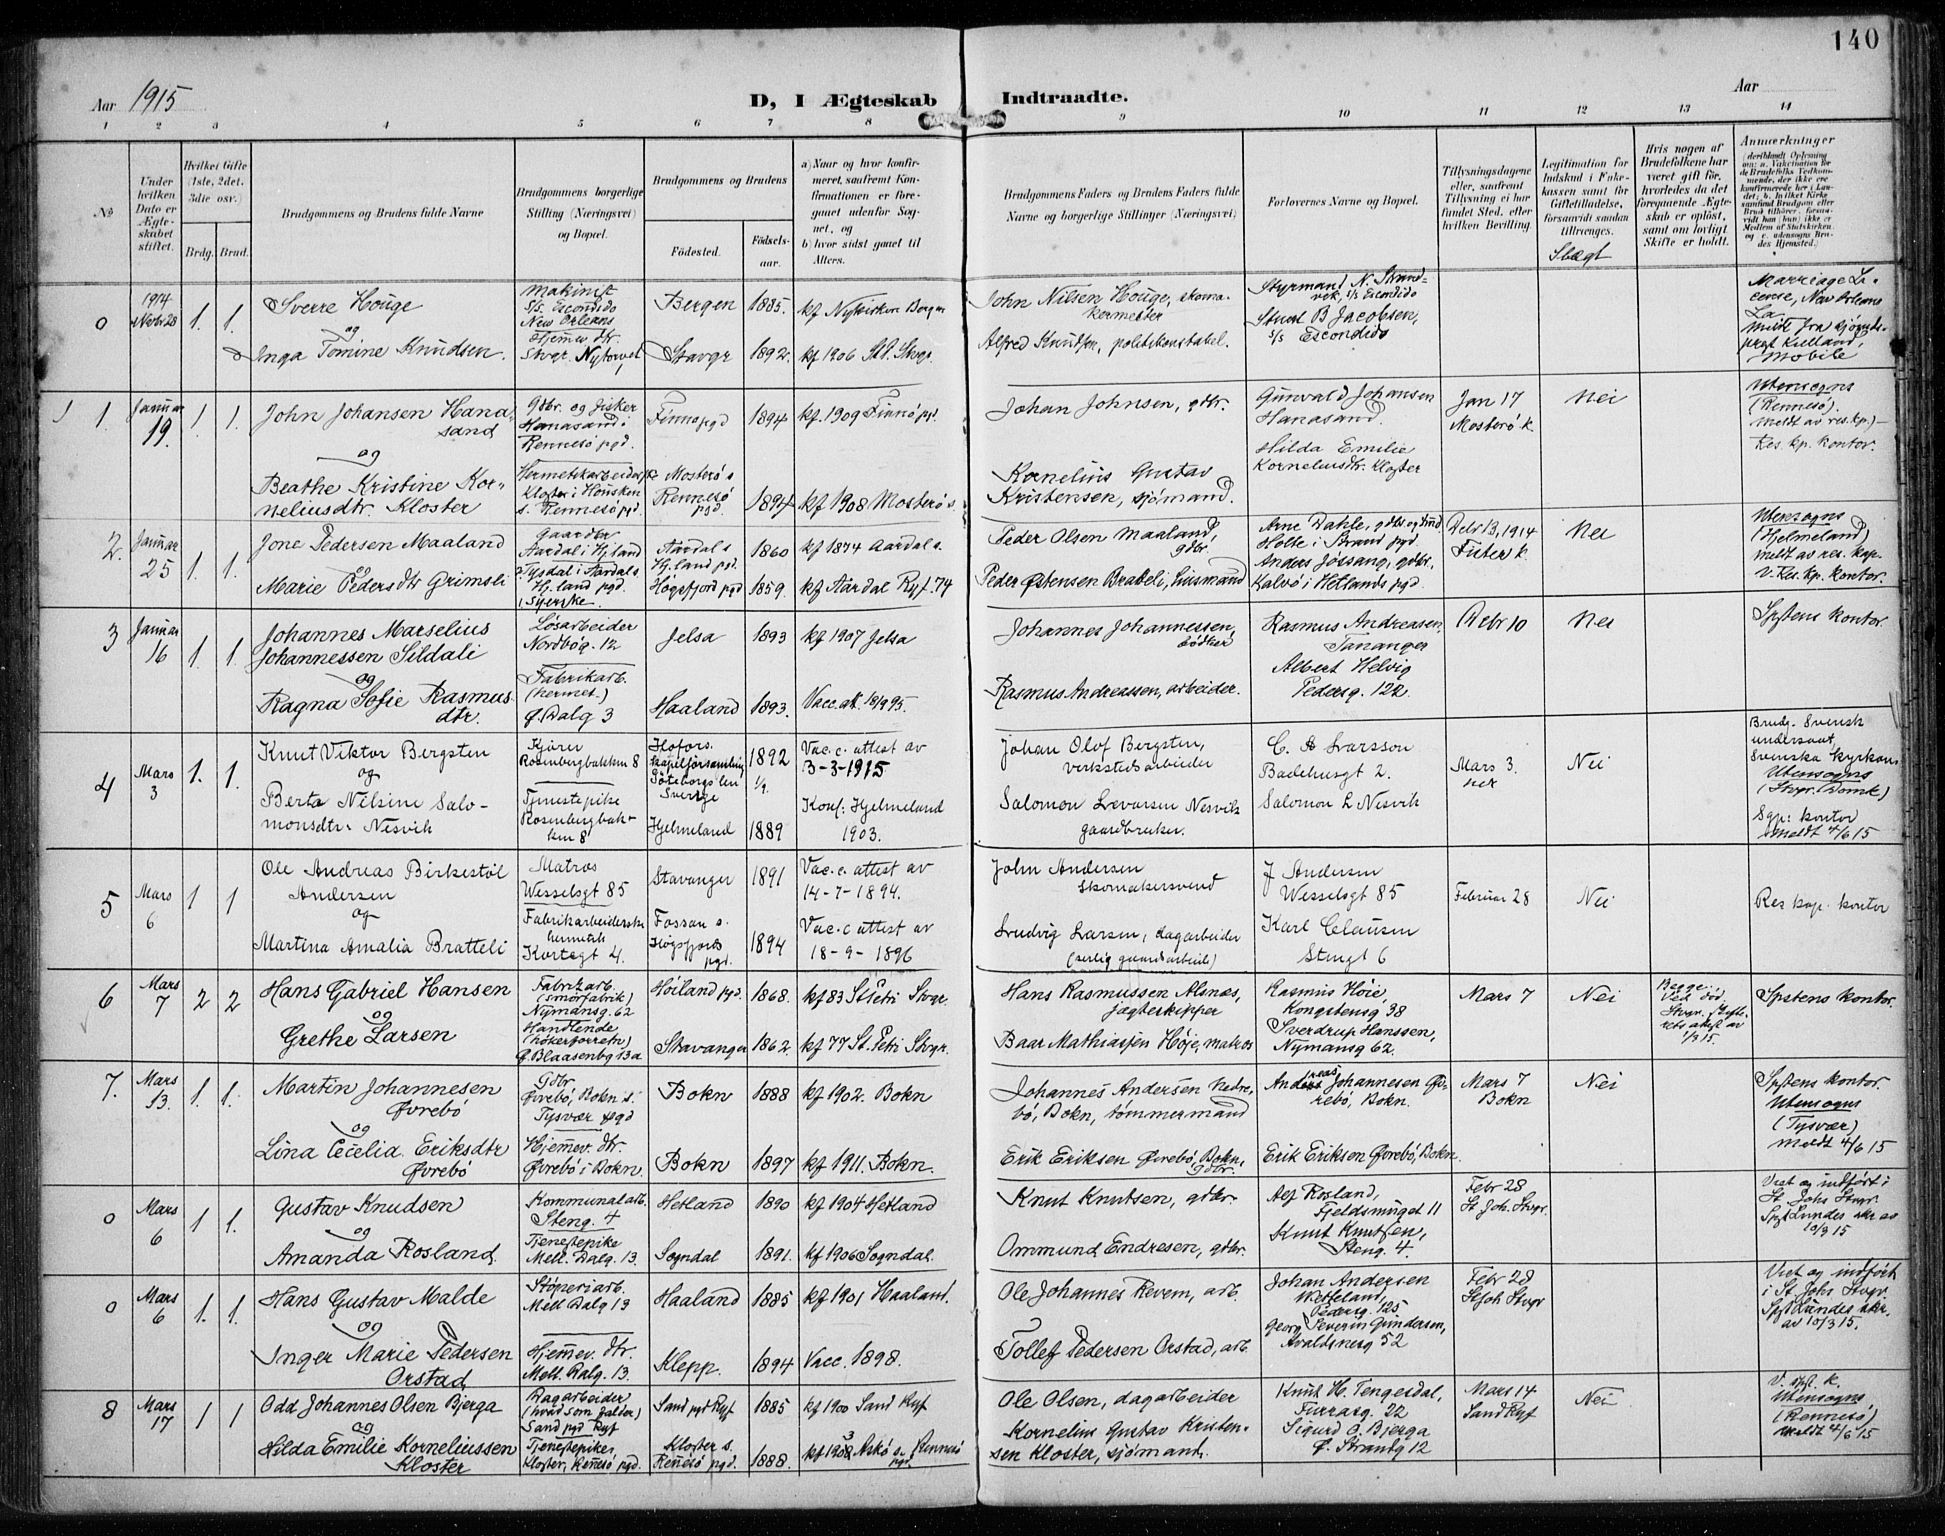 140
Aar 1915
D, I Ægteskab Indtraadte.
Aar
1 2 3 4 5 6 7 8 9 10 11 12 13 14
No
Under hvilken Dato er Ægteskabet stiftet.
Hvilket Gifte (1ste, 2det. 3die osv.)
Brdg. Brud.
Brudgommens og Brudens fulde Navne
Brudgommens borgerlige Stilling (Næringsvei) og Bopæl.
Brudgommens og Brudens
Födested.
Födsels-aar.
a) Naar og hvor konfirmeret, saafremt Konfirmationen er foregaaet udenfor Sognet, og
b) hvor sidst gaaet til Alters.
Brudgommens Faders og Brudens Faders fulde Navne og borgerlige Stillinger (Næringsvei)
Forlovernes Navne og Bopæl.
Tillysningsdagene eller, saafremt Tillysning ei har fundet Sted, efter hvilken Bevilling.
Legitimation for Indskud i Enkekassen samt for Giftetilladelse, forsaavidt saadan tiltrænges.
Slægt
Hvis nogen af Brudefolkene har været gift før, hvorledes da det foregaaende Ægteskab er opløst, samt om lovligt Skifte er holdt.
Anmærkninger
0
1914
Novbr 28
1. 1.
Sverre Houge
og
Inga Tomine Knudsen.
Makinist
S/S. Escondido
New Orleans
Hjemev. dtr.
Stvgr. Nytorvet,
Bergen 1885.
Stavgr 1892.
kf Nykirken Bergen
kf 1906 St.P. Stvgr.
John Nilsen Houge, skomakermester
Alfred Knudsen, politikonstabel.
Styrmand N. Strandvek, s/s Escondido
Stuert B Jacobsen,
s/s Escondido
Marriage Licence, New Orleans La
Meldt fra sjømandsprest Kielland, Mobile
1
Januar 19.
1. 1.
John Johansen Hanasand
og
Beathe Kristine Korneliusdtr. Kloster
Gdbr. og fisker
Hanasand i
Rennesø pgd.
Hermetikarbeiderske
Kloster i Housken
s. Rennesø pgd.
Finnø pgd 1894
Mosterø s
Rennesø pgd 1894
kf. 1909 Finnø pgd.
kf 1908 Mosterø s.
Johan Johnsen, gdbr.
Kornelius Gustav
Kristensen, sjømand.
Gunvald Johansen
Hanasand.
Hilda Emilie
Korneliusdtr. Kloster
Jan 17
Mosterø k.
Nei
Utensogns
(Rennesø).
Meldt av res.kp.)—
Res. kp. kontor.
2.
Januar 25
1. 1.
Jone Pedersen Maaland
og
Marie Pedersdtr Grimsli
Gaardbr
Aardal i Hj.land
Tysdal i Aardal s
Hj.land pgd.
Syerske.
Aardal s.
Hj.land pgd. 1860
Høgsfjord pgd 1859.
kf 1874 Aardal s.
kf Aardal Ryf. 74
Peder Olsen Maaland, gdbr.
Peder Østensen Brabeli, husmand
Arne Dahle, gdbr. og smd.
Holte i Strand pgd.
Anders Jøssang, gdbr.,
Kalvø i Hetlands pgd.
Debr 13, 1914
Fister k.
Nei
Utensogns
(Hjelmeland)
Meldt av res. kap.
V. Res. kp. kontor.
3
Januar 16
1. 1.
Johannes Marselius
Johannessen Sildali
og
Ragna Sofie Rasmusdtr.
Løsarbeider
Nordbøg. 12
Fabrikarb.
(hermet.)
Ø. Dalg 3
Jelsa 1893
Haaland 1893.
kf 1907 Jelsa
Vacc. att. 18/9 95.
Johannes Johannessen, bødker
Rasmus Andreassen, arbeider.
Rasmus Andreasen,
Tananger
Albert Helvig
Pedersg. 122.
Debr 10
Nei
Spstens kontor.
4
Mars 3
1. 1.
Knut Viktor Bergsten
og
Berta Nilsine Salomonsdtr. Nesvik
Kjører
Rosenbergbakken 8
Tjenestepike
Rosenbergbakken 8
Hofors kapelförsamling
Göteborgs len
Sverige 1892
Hjelmeland 1889
Vac. c. attest av
3-3-1915
Konf: Hjelmeland
1903.
Johan Olof Bergsten,
verkstedsarbeider
Salomon Levarsen Nesvik
gaardbruker.
C. A Larsson
Badehusgt 2.
Salomon L Nesvik
Mars 3.
Nei
Brudg. Svensk undersaat,
Svenska kyrkan
Utensogns
(Stvgr. Domk)
Sgp: kontor
meldt 4/6 15
5
Mars 6
1 1
Ole Andreas Birkestöl
Andersen
og
Martina Amalia Bratteli
Matros
Wesselsgt 85
Fabrikarbeiderske
hermetik
Kortegt 4.
Stavanger 1891
Fossan s.
Høgsfjords pgd. 1894
Vac. c. attest av
14-7-1894.
Vac. c attest av
18-9-1896
John Andersen
Skomakersvend
Ludvig Larsen, dagarbeider
(særlig gaardsarbeide)
J Andersen
Wesselsgt 85
Karl Clausen
Stengt 6
Februar 28
Nei
Res kap. kontor
6
Mars 7
2 2
Hans Gabriel Hansen
og
Grethe Larsen
Fabrikarb.
(smörfabrik)
Nymansg. 62
Handlende
(hökerforretn)
Ø. Blaasenbg 13a
Høiland pgd. 1868.
Stavanger 1862.
kf 83 St Petri Stvgr.
kf 77 St. Petri Stvgr.
Hans Rasmussen Alsnæs,
jagteskipper
Baar Mathiassen Høje, matros
Rasmus Høie,
Kongstensg 38
Sverdrup Hanssen,
Nymansg 62.
Mars 7
Nei
Begge:
Ved död.
Stvgr. skifterets attest av
1/3 15.
Spstens kontor.
7.
Mars 13.
1. 1.
Martin Johannesen
Øvrebö
og
Lina Cecelia Eriksdtr
Øvrebö
Gdbr.
Øvrebö, Bokn s.
Tysvær pgd
Hjemmev. dtr.
Øvrebö i Bokn.
Bokn 1888
Bokn 1897
kf 1902. Bokn
kf 1911. Bokn.
Johannes Andersen Nedrebö, Bokn, tømmermand
Erik Eriksen Øvrebö, Bokn, gdbr.
Andreas Johannesen Øvrebö, Bokn.
Erik Eriksen Øvrebö, Bokn.
Mars 7
Bokn
Nei
Spstens kontor.
Utensogns
(Tysvær)
meldt 4/6 15
0
Mars 6
1. 1.
Gustav Knudsen
og
Amanda Rosland.
Kommunalarb.
Steng. 4
Tjenestepike
Mell. Dalg. 13.
Hetland 1890
Sogndal 1891.
kf 1904 Hetland
kf 1906 Sogndal.
Knut Knutsen, gdbr.
Ommund Endresen, gdbr.
Alf Rosland,
Fjeldsmuget 11
Knut Knutsen,
Steng. 4.
Febr 28
St Joh. Stvgr.
Viet og indført i
St. Johs Stvgr.
Spst Lundes skr av
10/3 15
0
Mars 6
1. 1.
Hans Gustav Malde
og
Inger Marie Pedersen
Orstad
Støperiarb.
Mell. Dalg 13
Hjemmev. dtr.
Mell. Dalg. 13.
Haaland 1885
Klepp. 1894
kf 1901 Haaland.
Vacc. 1898.
Ole Johannes Revem, arb.
Tollef Pedersen Orstad, arb.
Johan Andersen
Wetteland,
Pedersg. 125
Georg Severin Gundersen,
Avaldsnesg 52
Febr 28
St Joh Stvgr
Viet og indført
i St. Johs Stvgr.
Spst Lundes skr.
av 10/3 15.
8
Mars 17
1 1
Odd Johannes Olsen Bjerga
og
Hilda Emilie Korneliussen
Kloster
Dagarbeider
(hvad som falder)
Sand pgd Ryf
Tjenestepike,
Kloster, Rennesø pgd.
Sand pgd Ryf 1885
Kloster s.
Rennesø pgd. 1888.
kf 1900 Sand Ryf
kf 1903 Askø s. Rennesö pgd.
Ole Olsen, dagarbeider
Kornelius Gustav Kristensen Kloster, sjömand.
Knut H. Tengesdal,
Furrasg. 22
Sigurd O. Bjerga
Ø. Strandg 12
Mars 14
Sand Ryf
Nei
V. spst. k.
Utensogns
(Rennesö)
meldt 4/6 15